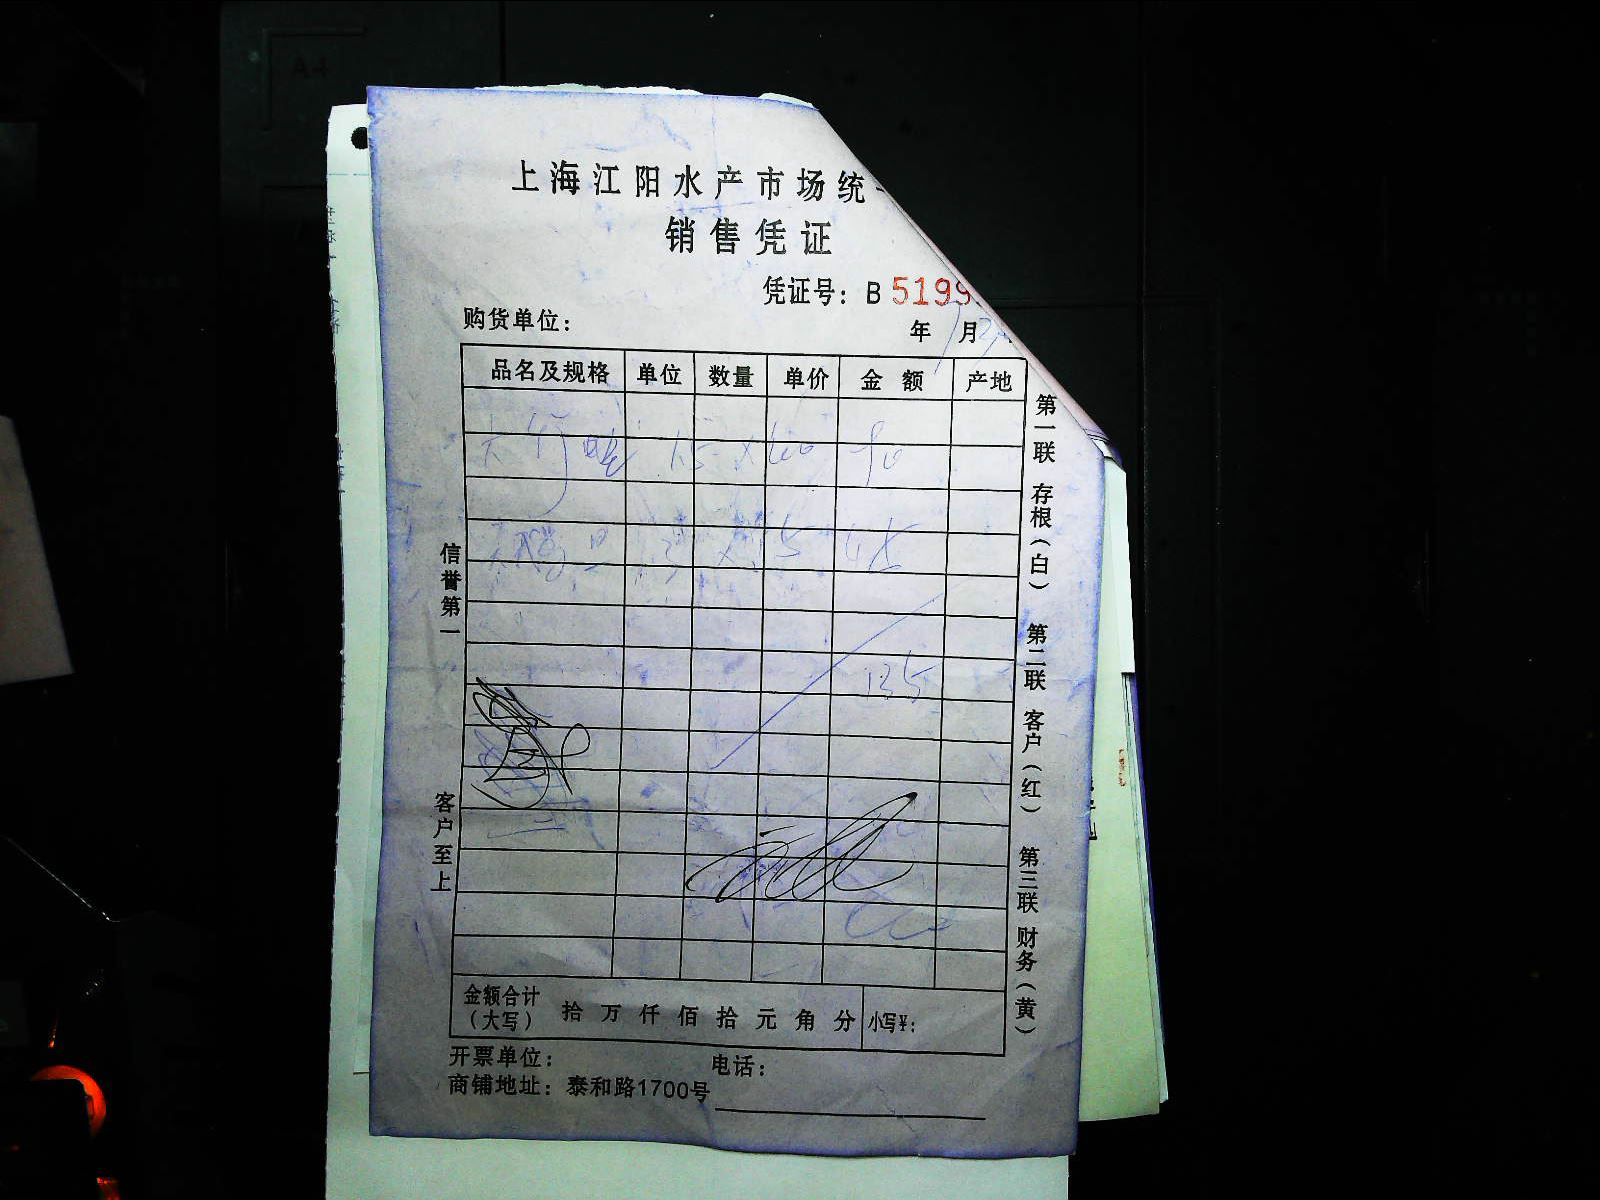 上海江阳水产市场统
销售凭证
凭证号：B 5199
购货单位：
年 月
品名及规格 单位 数量 单价 金额 产地
90
45
135
信誉第一
客户至上
第一联 存根（白） 第二联 客户（红） 第三联 财务（黄）
金额合计（大写） 拾 万 仟 佰 拾 元 角 分 小写¥：
开票单位： 电话：
商铺地址：泰和路1700号